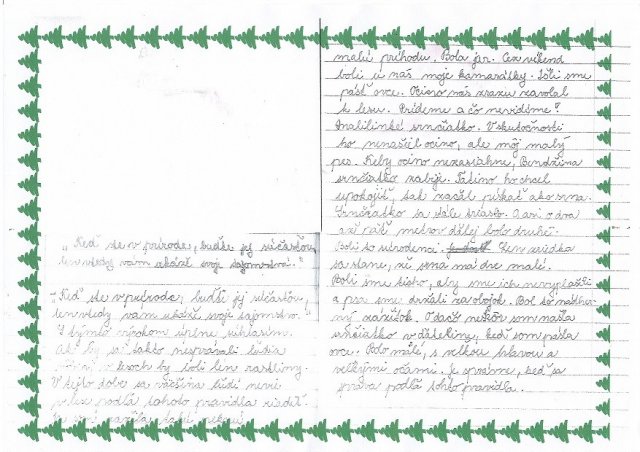 „Keď ste v prírode, buďte jej súčasťou,
len vtedy vám ukáže svoje tajomstvá."
„Keď ste v prírode, buďte jej súčasťou,
len vtedy vám ukáže svoje tajomstvá."
S týmto výrokom úplne súhlasím.
Ak by sa takto nesprávali ľudia
v lesoch by žili len rastliny.
V tejto dobe sa väčšina ľudí nevie
podľa tohoto pravidla riadiť
malú príhodu. Bola jar. Cez víkend
boli u nás moje kamarátky. Išli sme
pásť ovce. Ocino nás zrazu zavolal
k lesu. Prídeme a čo nevidíme?
Malilinké srnčiatko. V skutočnosti
ho nenašiel ocino, ale môj malý
pes. Keby ocino nezasiahne,
srnčiatko zabije. Tatino ho chcel
upokojiť, tak začal pískať ako srna.
Srnčiatko sa stále triaslo. O asi dva
až päť metrov ďalej bolo druhé.
Boli to súrodenci. Len zriedka
sa stane, že srna má dve malé.
Boli sme ticho, aby sme ich nevyplašili
a psa sme držali za obojok. Bol to nádherný
zážitok. O dačo neskôr som našla
srnčiatko v ďateline, keď som pásla
ovce. Bolo malé, s veľkou hlavou a
veľkými očami. Je správne, keď sa
správa podľa tohto pravidla.